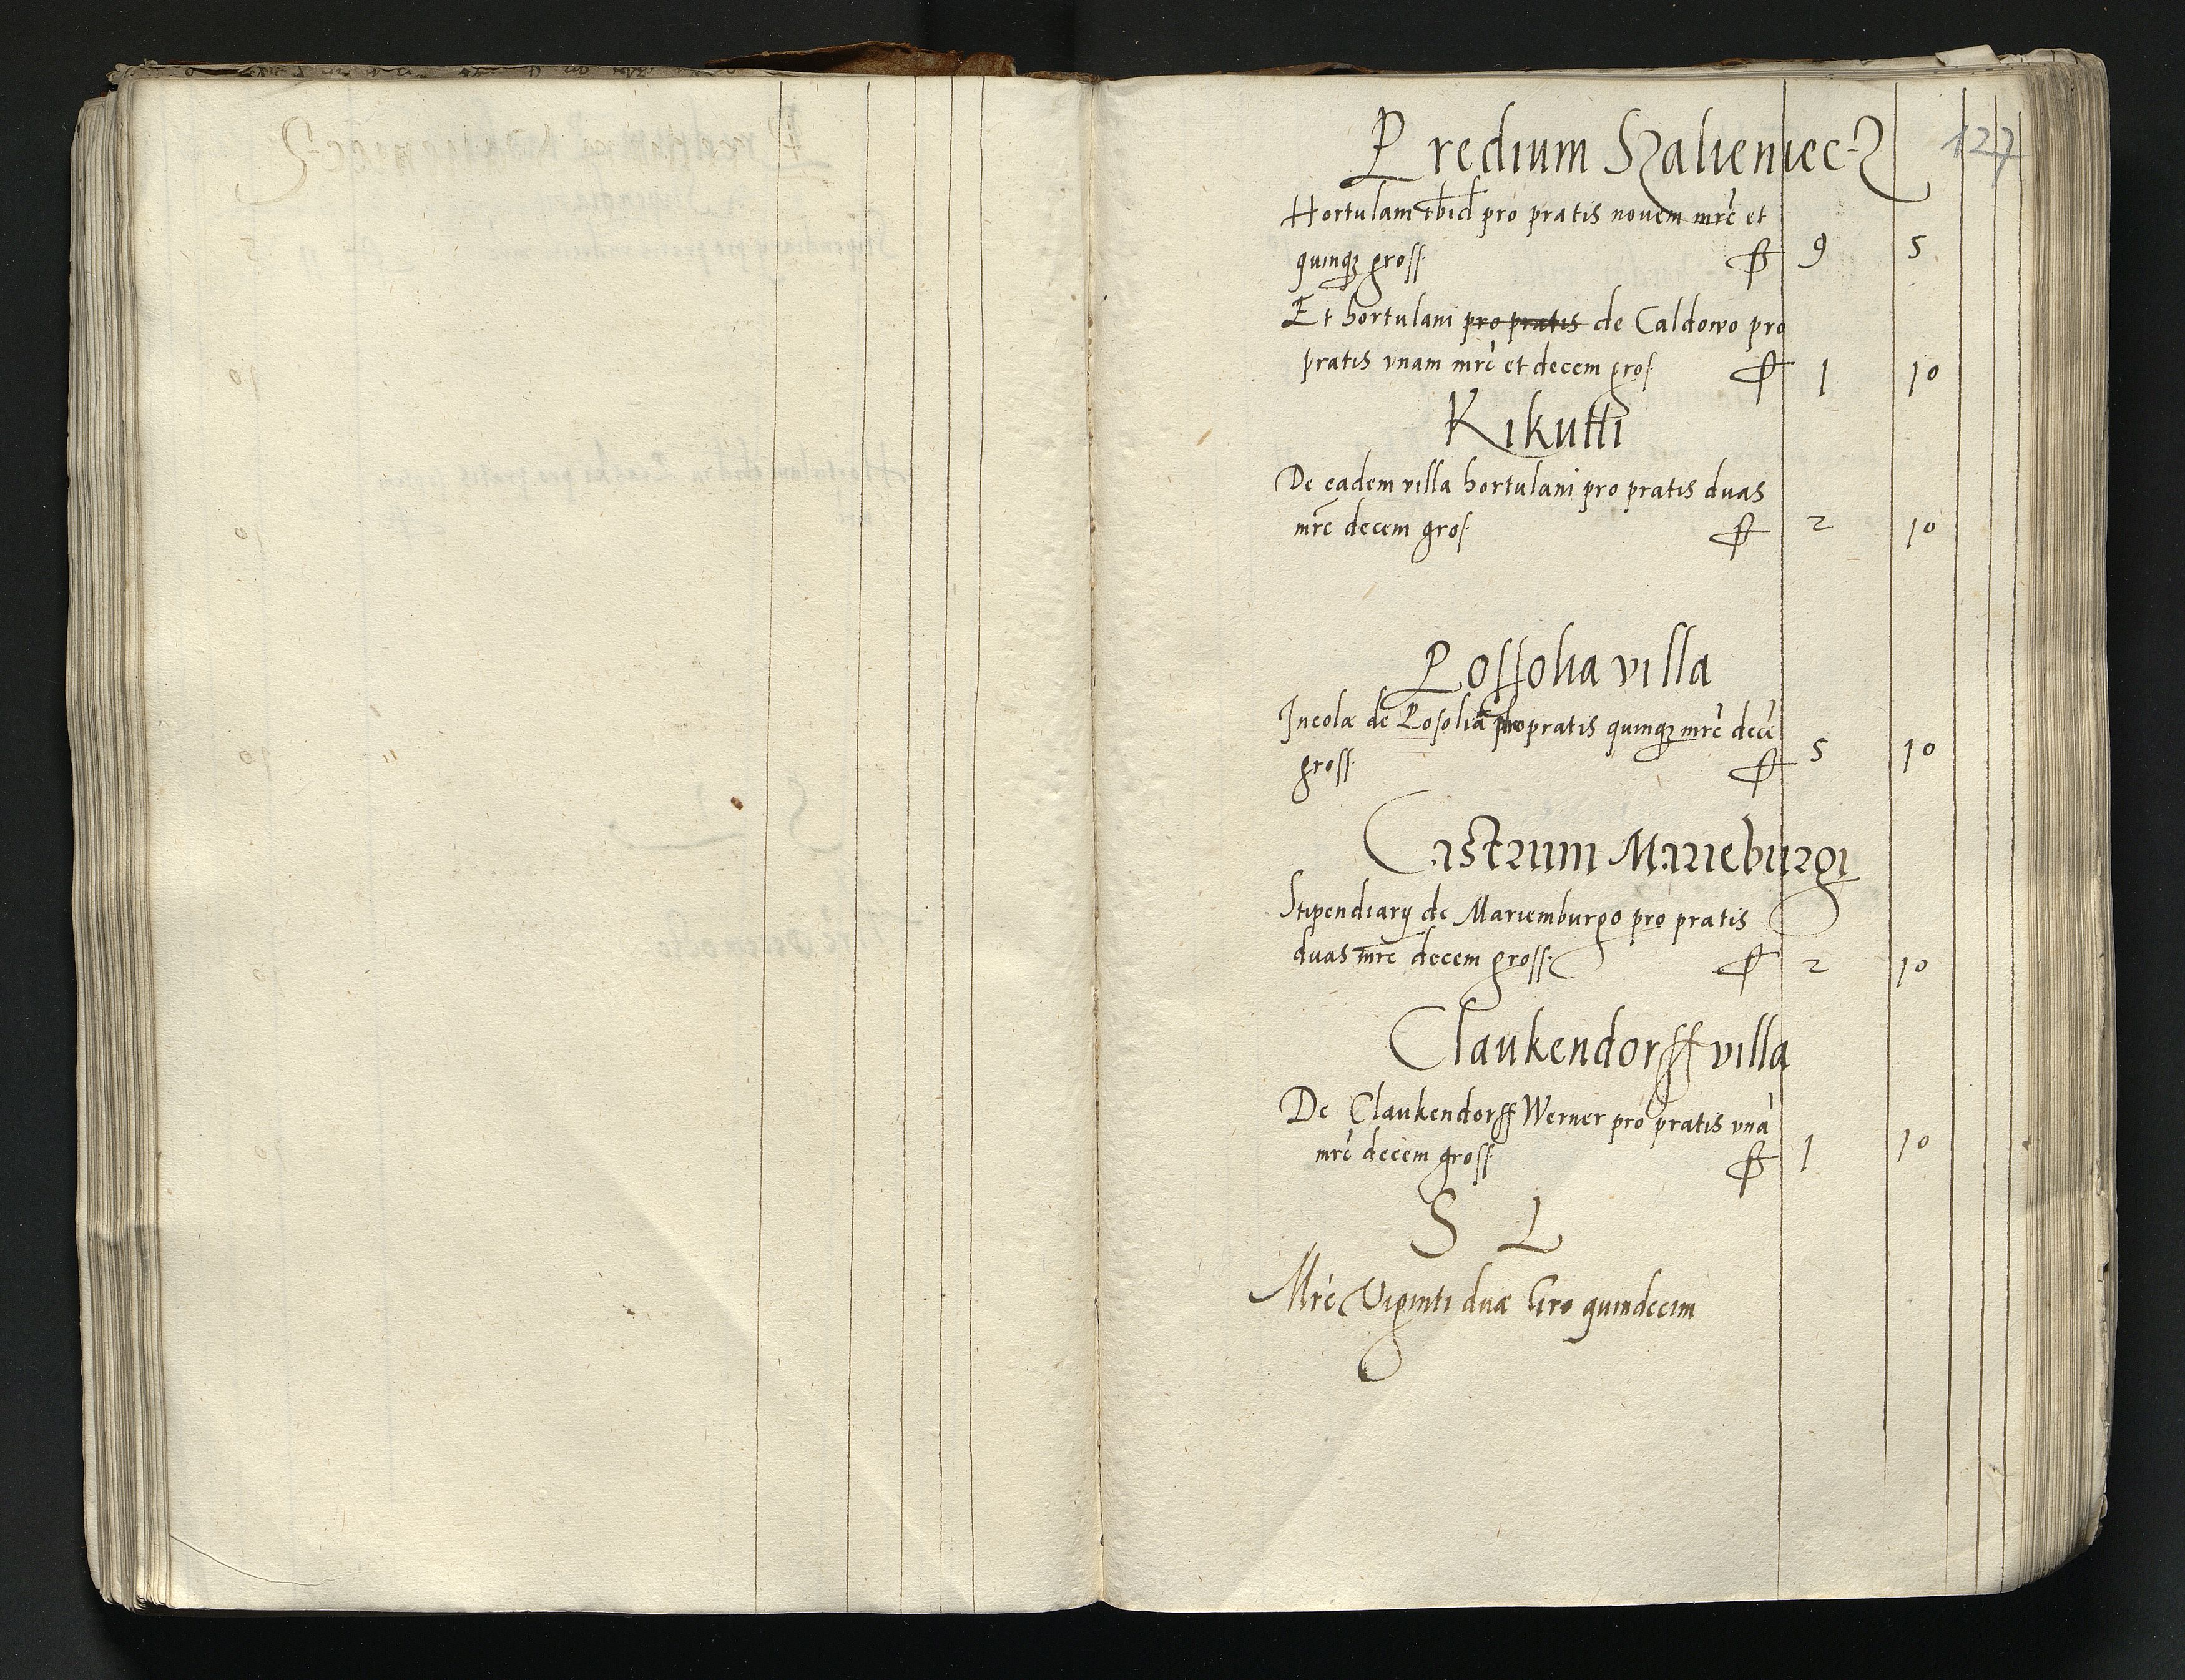 Predium Szalieniecz
127
Hortulani ibid pro pratis novem mrc et
quinqȝ gross. ꝭ 9 5
Et hortulani pro pratis de Caldowo pro
pratis vnam mrc et decem gros. ꝭ 1 10
Kikutti
De eadem villa hortulani pro pratis duas
mrc decem gros. ꝭ 2 10
Possolia villa
Incolæ de Posolia pro pratis quinqȝ mrc decē
gross. ꝭ 5 10
Castrum Marieburgi
Stipendiarÿ de Mariemburgo pro pratis
duas mrc decem gross. ꝭ 2 10
Claukendorff villa
De Claukendorff Werner pro pratis vnā
mrc decem gross. ꝭ 1 10
S L
Mrc Viginti duæ Gro quindecim